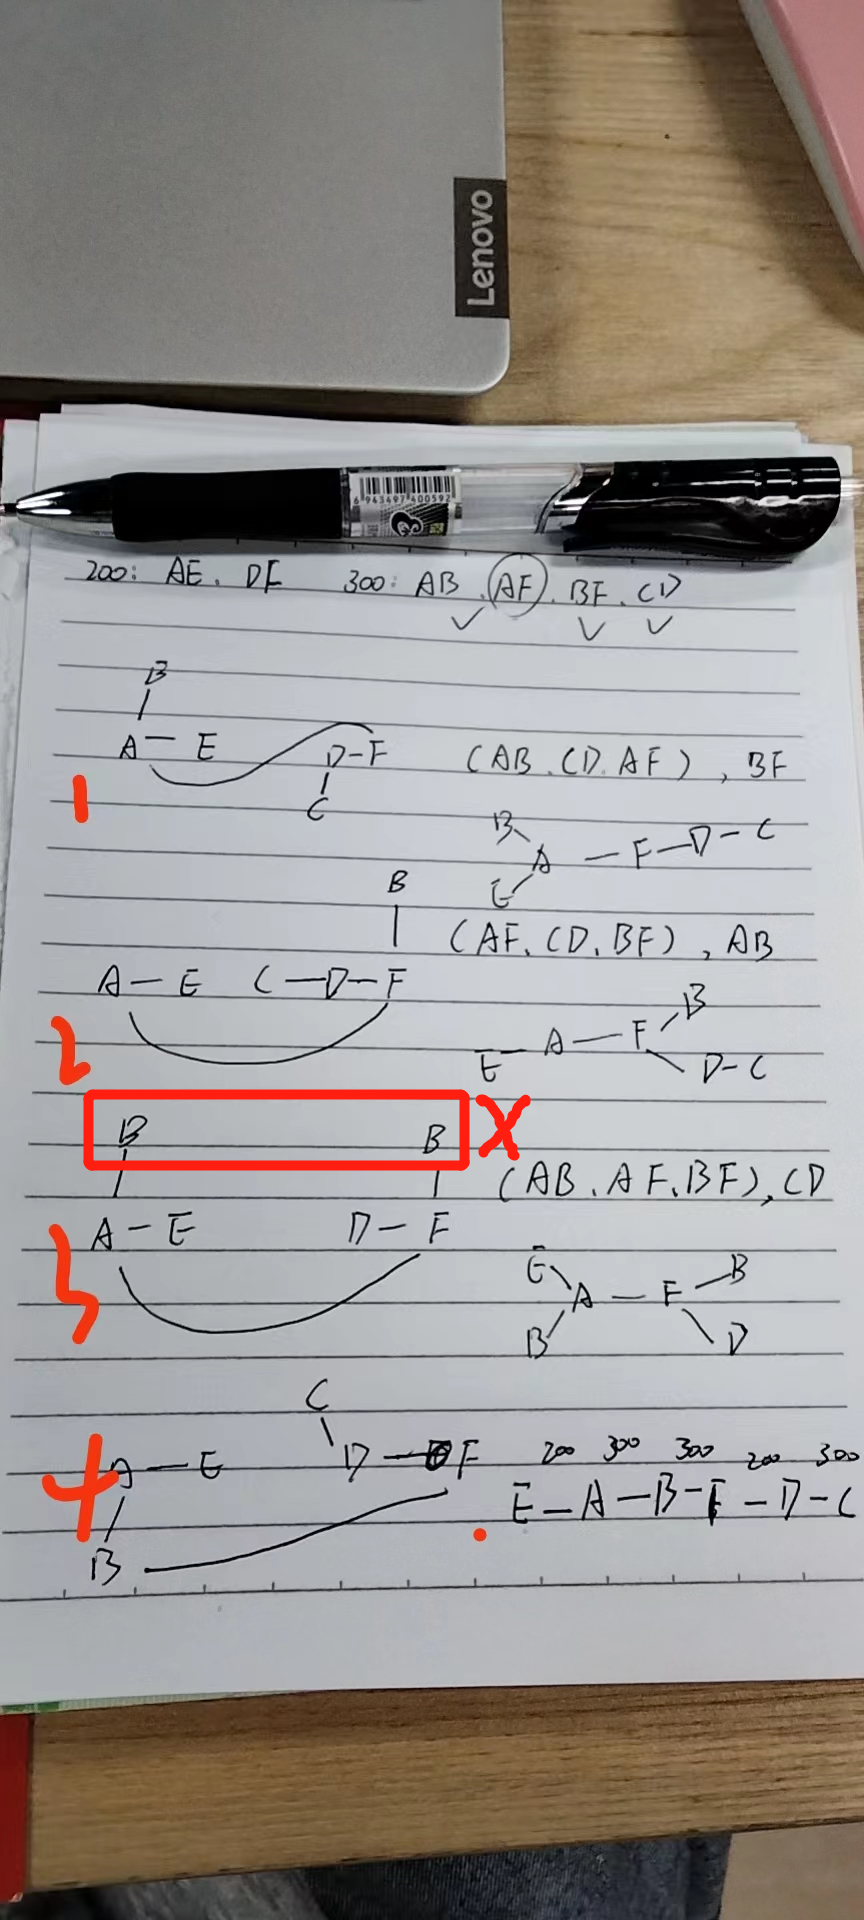 Lenovo
6 943497 400592
200: AE. DF 300: AB. AF. BF. CD
B
A — E D-F (AB. CD. AF), BF
1 C
B
A — F — D - C
E
B
(AF. CD. BF), AB
A — E C — D — F
B
2 E — A — F
D - C
B B X
(AB. AF. BF), CD
A — E D — F
3 E B
A — F
B D
C
4 A — E D — F 200 300 300 200 300
E — A — B — F — D — C
B